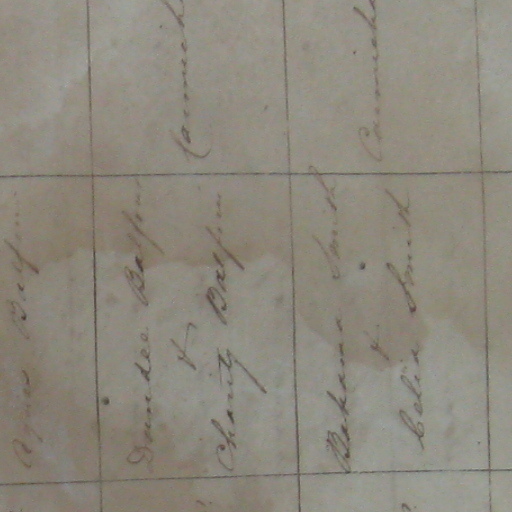 Agnes Balfour
Dundee Balfour
&
Charity Balfour
Carmich
Bahama Smith
&
Celia Smith
Carmicha